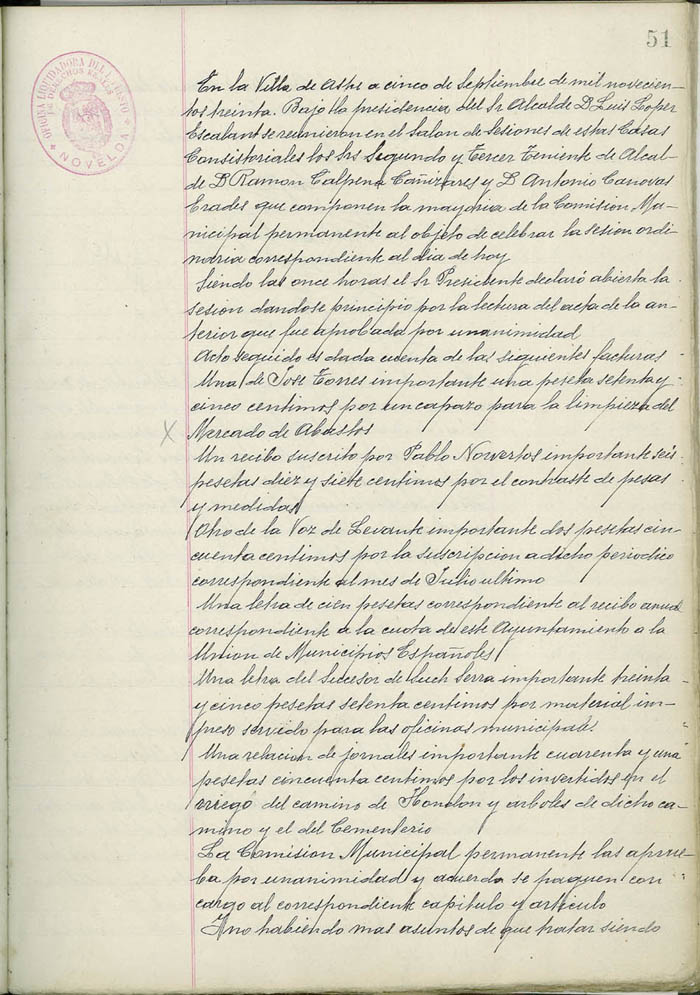 51
OFICINA LIQUIDADORA DEL IMPUESTO
DE DERECHOS REALES
NOVELDA
En la Villa de Aspe a cinco de Septiembre de mil novecien-
tos treinta. Bajo la presidencia del Sr Alcalde D Luis Lopez
Escalant se reunieron en el Salon de Sesiones de estas Casas
Consistoriales los Srs Segundo y Tercer Teniente de Alcal-
de D Ramon Calpena Cañizares y D Antonio Canovas
Erades que componen la mayoria de la Comision Mu-
nicipal permanente al objeto de celebrar la sesion ordi-
naria correspondiente al dia de hoy
Siendo las once horas el Sr Presidente declaró abierta la
sesion dandose principio por la lectura del acta de la an-
terior que fue aprobada por unanimidad
Acto seguido es dada cuenta de las siguientes facturas
Una de Jose Torres importante una peseta setenta y
cinco centimos por un capazo para la limpieza del
X Mercado de Abastos
Un recibo suscrito por Pablo importante seis
pesetas diez y siete centimos por el contraste de pesas
y medidas
Otro de la Voz de Levante importante dos pesetas cin-
cuenta centimos por la suscripcion a dicho periodico
correspondiente al mes de Julio ultimo
Una letra de cien pesetas correspondiente al recibo anual
correspondiente a la cuota de este Ayuntamiento a la
Union de Municipios Españoles
Una letra del Sucesor de Such Serra importante treinta
y cinco pesetas setenta centimos por material im-
preso servido para las oficinas municipales.
Una relacion de jornales importante cuarenta y una
pesetas cincuenta centimos por los invertidos en el
rriego del camino de Hondon y arboles de dicho ca-
mino y el del Cementerio
La Comision Municipal permanente las aprue-
ba por unanimidad y acuerda se paguen con
cargo al correspondiente capitulo y articulo
Y no habiendo mas asuntos de que tratar siendo